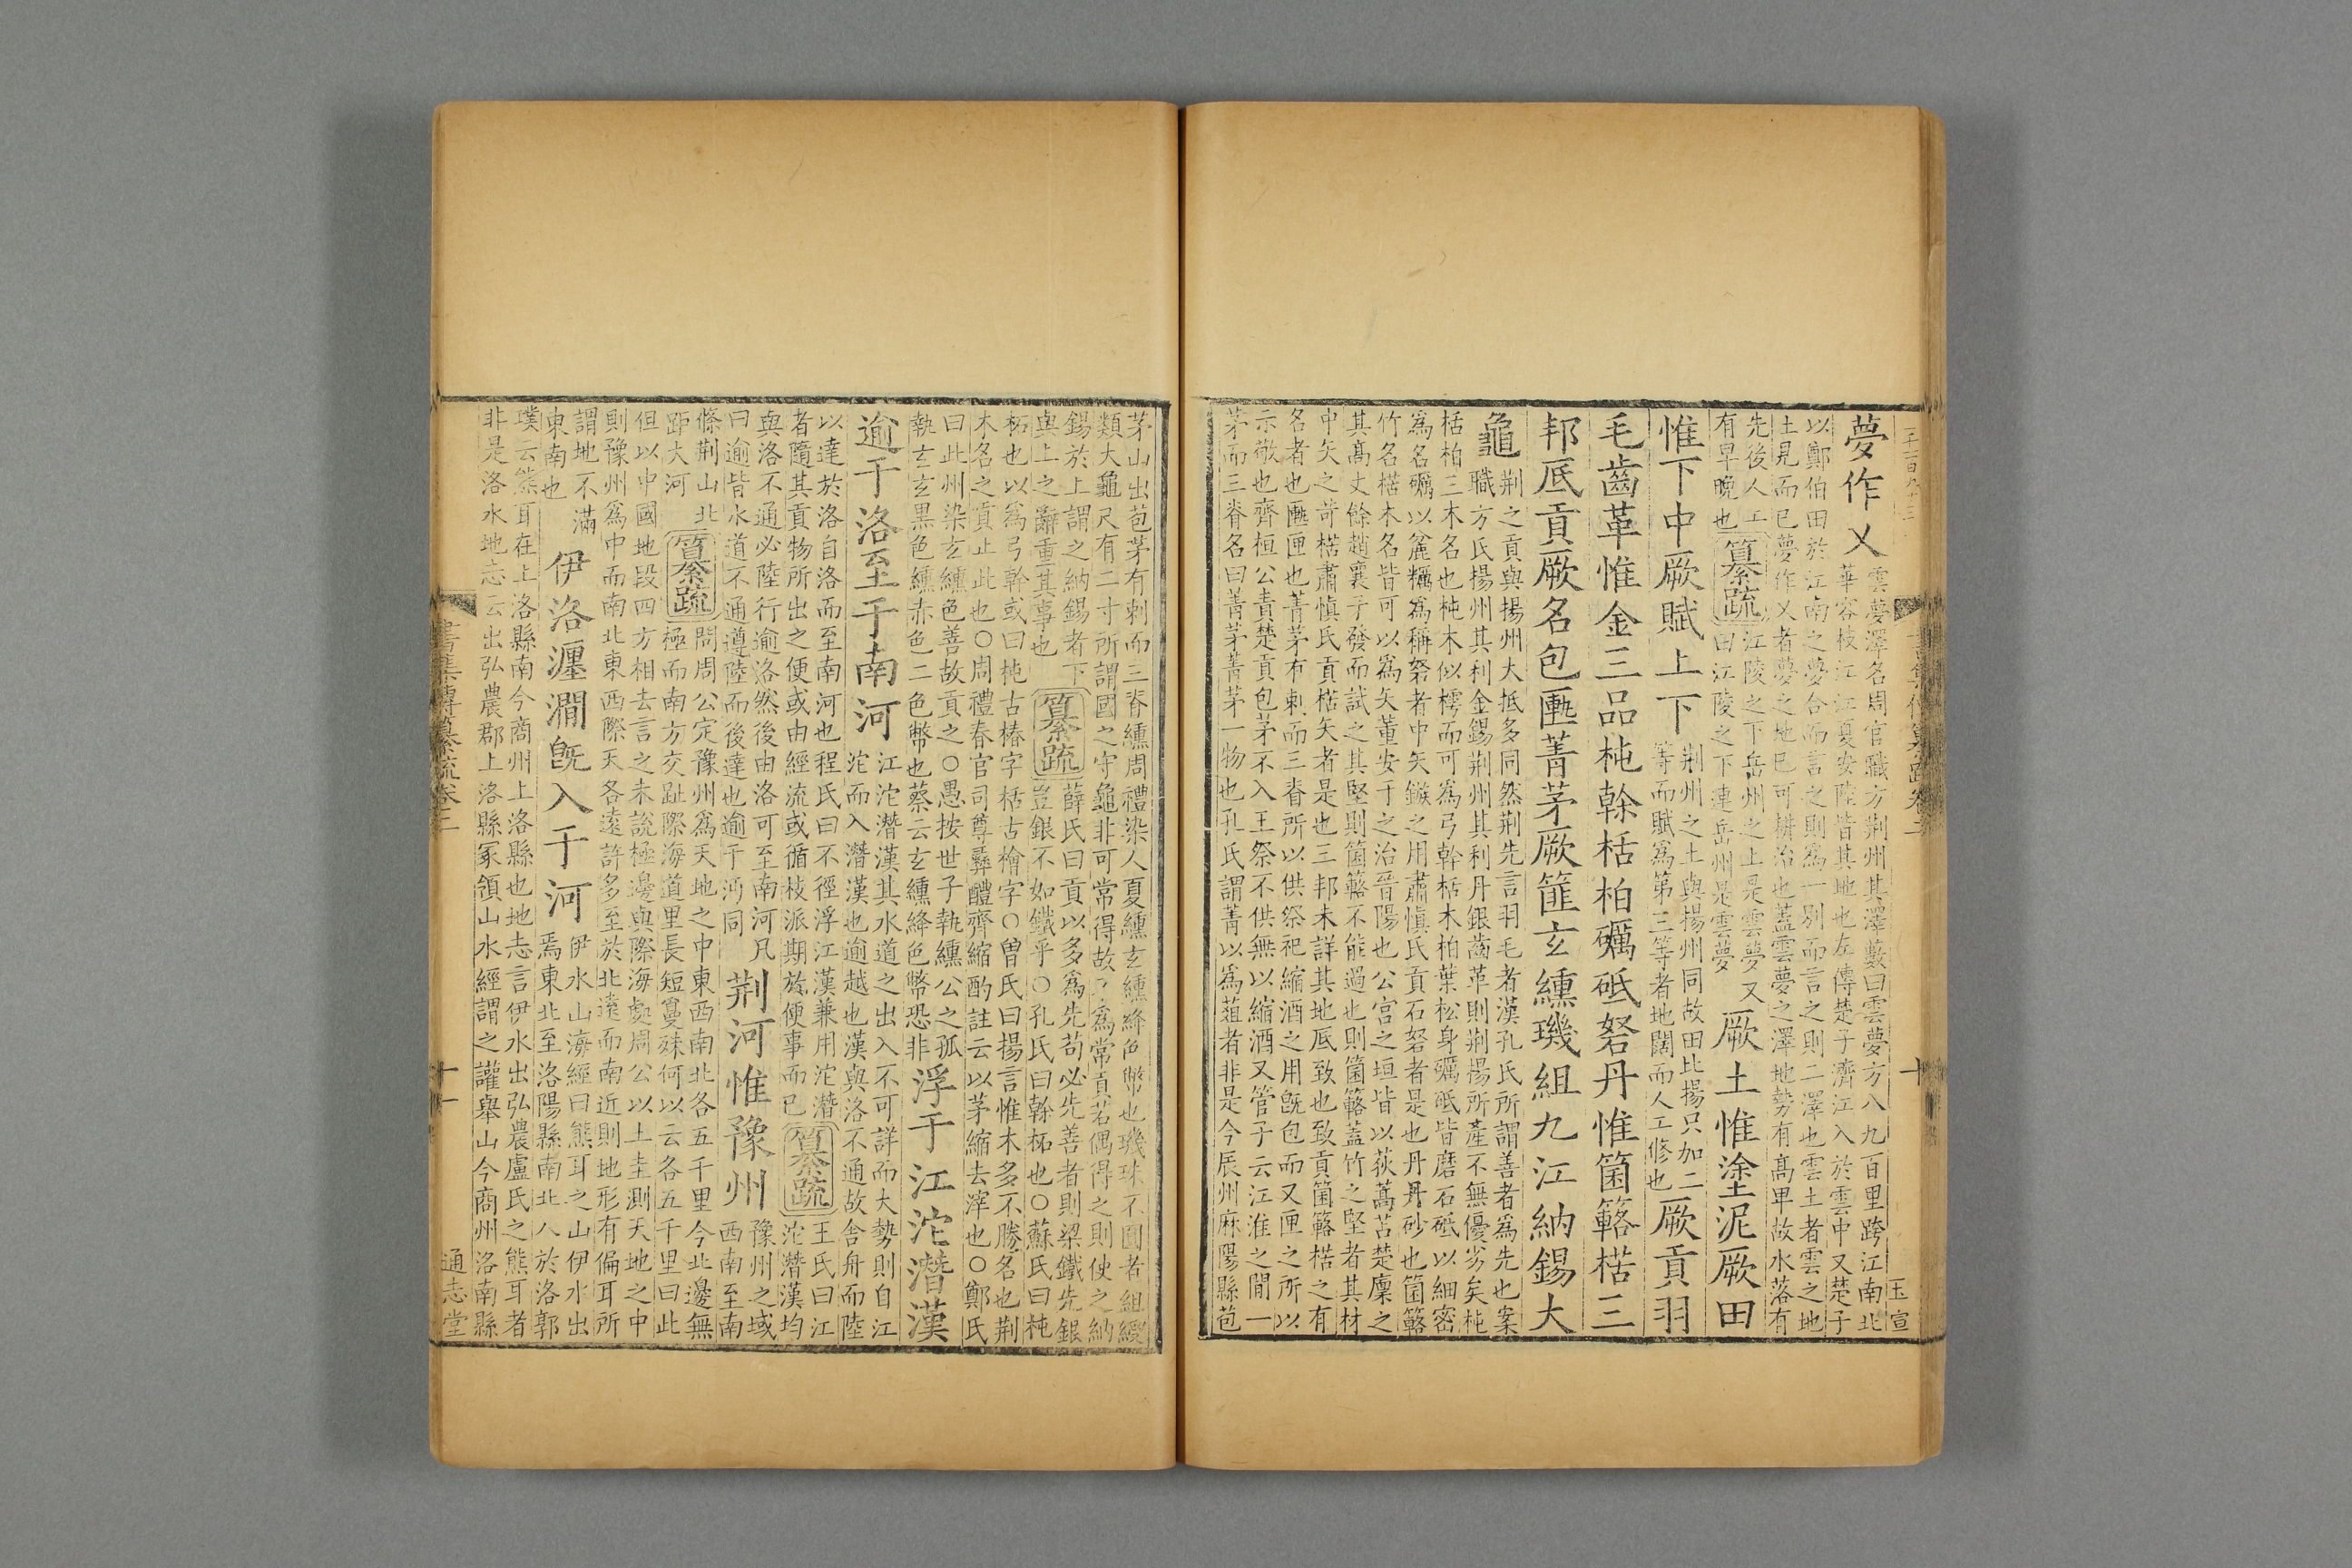 夢作乂雲夢澤名周官職方荆州其澤藪曰雲夢方八九百里跨江南北
華容枝江江夏安陸皆其地也左傳楚子濟江入於雲中又楚子
以鄭伯田於江南之夢合而言之則爲一別而言之則二澤也雲土者雲之地
土見而已夢作乂者夢之地已可耕治也蓋雲夢之澤地勢有高卑故水落有
先後人工
有早晚也
纂疏
江陵之下岳州之上是雲夢又
曰江陵之下連岳州是雲夢
厥土惟塗泥厥田
惟下中厥賦上下
荆州之土與揚州同故田比揚只加二
等而賦爲第三等者地闊而人工修也
厥貢羽
毛齒革惟金三品杶榦栝柏礪砥砮丹惟箘簵楛三
邦厎貢厥名包匭菁茅厥篚玄纁璣組九江納錫大
龜
荆之貢與揚州大抵多同然荆先言羽毛者漢孔氏所謂善者爲先也案
職方氏揚州其利金錫荆州其利丹銀齒革則荆揚所產不無優劣矣杶
栝柏三木名也杶木似樗而可爲弓幹栝木柏葉松身礪砥皆磨石砥以細密
爲名礪以麄糲爲稱砮者中矢鏃之用肅慎氏貢石砮者是也丹丹砂也箘簵
竹名楛木名皆可以爲矢董安于之治晉陽也公宮之垣皆以荻蒿苫楚廩之
其高丈餘趙襄子發而試之其堅則箘簵不能過也則箘簵蓋竹之堅者其材
中矢之笴楛肅慎氏貢楛矢者是也三邦未詳其地厎致也致貢箘簵楛之有
名者也匭匣也菁茅有刺而三脊所以供祭祀縮酒之用既包而又匣之所以
示敬也齊桓公責楚貢包茅不入王祭不供無以縮酒又管子云江淮之間一
茅而三脊名曰菁茅菁茅一物也孔氏謂菁以爲葅者非是今辰州麻陽縣苞
書集傳纂疏卷二
十
玉宣
茅山出苞茅有刺而三脊纁周禮染人夏纁玄纁絳色幣也璣珠不圓者組綬
類大龜尺有二寸所謂國之守龜非可常得故不爲常貢若偶得之則使之納
錫於上謂之納錫者下
與上之辭重其事也
纂疏
薛氏曰貢以多爲先苟必先善者則梁鐵先銀
豈銀不如鐵乎○孔氏曰榦柘也○蘇氏曰杶
柘也以爲弓幹或曰杶古椿字栝古檜字○曾氏曰揚言惟木多不勝名也荆
木名之貢止此也○周禮春官司尊彝醴齊縮酌註云以茅縮去滓也○鄭氏
曰此州染玄纁色善故貢之○愚按世子執纁公之孤
執玄玄黑色纁赤色二色幣也蔡云玄纁絳色幣恐非
浮于江沱潛漢
逾于洛至于南河
江沱潛漢其水道之出入不可詳而大勢則自江
沱而入潛漢也逾越也漢與洛不通故舍舟而陸
以達於洛自洛而至南河也程氏曰不徑浮江漢兼用沱潛
者隨其貢物所出之便或由經流或循枝派期於便事而已
纂疏
王氏曰江
沱潛漢均
與洛不通必陸行逾洛然後由洛可至南河凡
曰逾皆水道不通遵陸而後達也逾于沔同
荆河惟豫州
豫州之域
西南至南
條荆山北
距大河
纂疏
問周公定豫州爲天地之中東西南北各五千里今北邊無
極而南方交趾際海道里長短敻殊何以云各五千里曰此
但以中國地段四方相去言之未說極邊與際海處周公以土圭測天地之中
則豫州爲中而南北東西際天各遠許多至於北遠而南近則地形有偏耳所
謂地不滿
東南也
伊洛瀍澗既入于河
伊水山海經曰熊耳之山伊水出
焉東北至洛陽縣南北入於洛郭
璞云熊耳在上洛縣南今商州上洛縣也地志言伊水出弘農盧氏之熊耳者
非是洛水地志云出弘農郡上洛縣冢領山水經謂之讙舉山今商州洛南縣
書集傳纂疏卷二
十一
通志堂